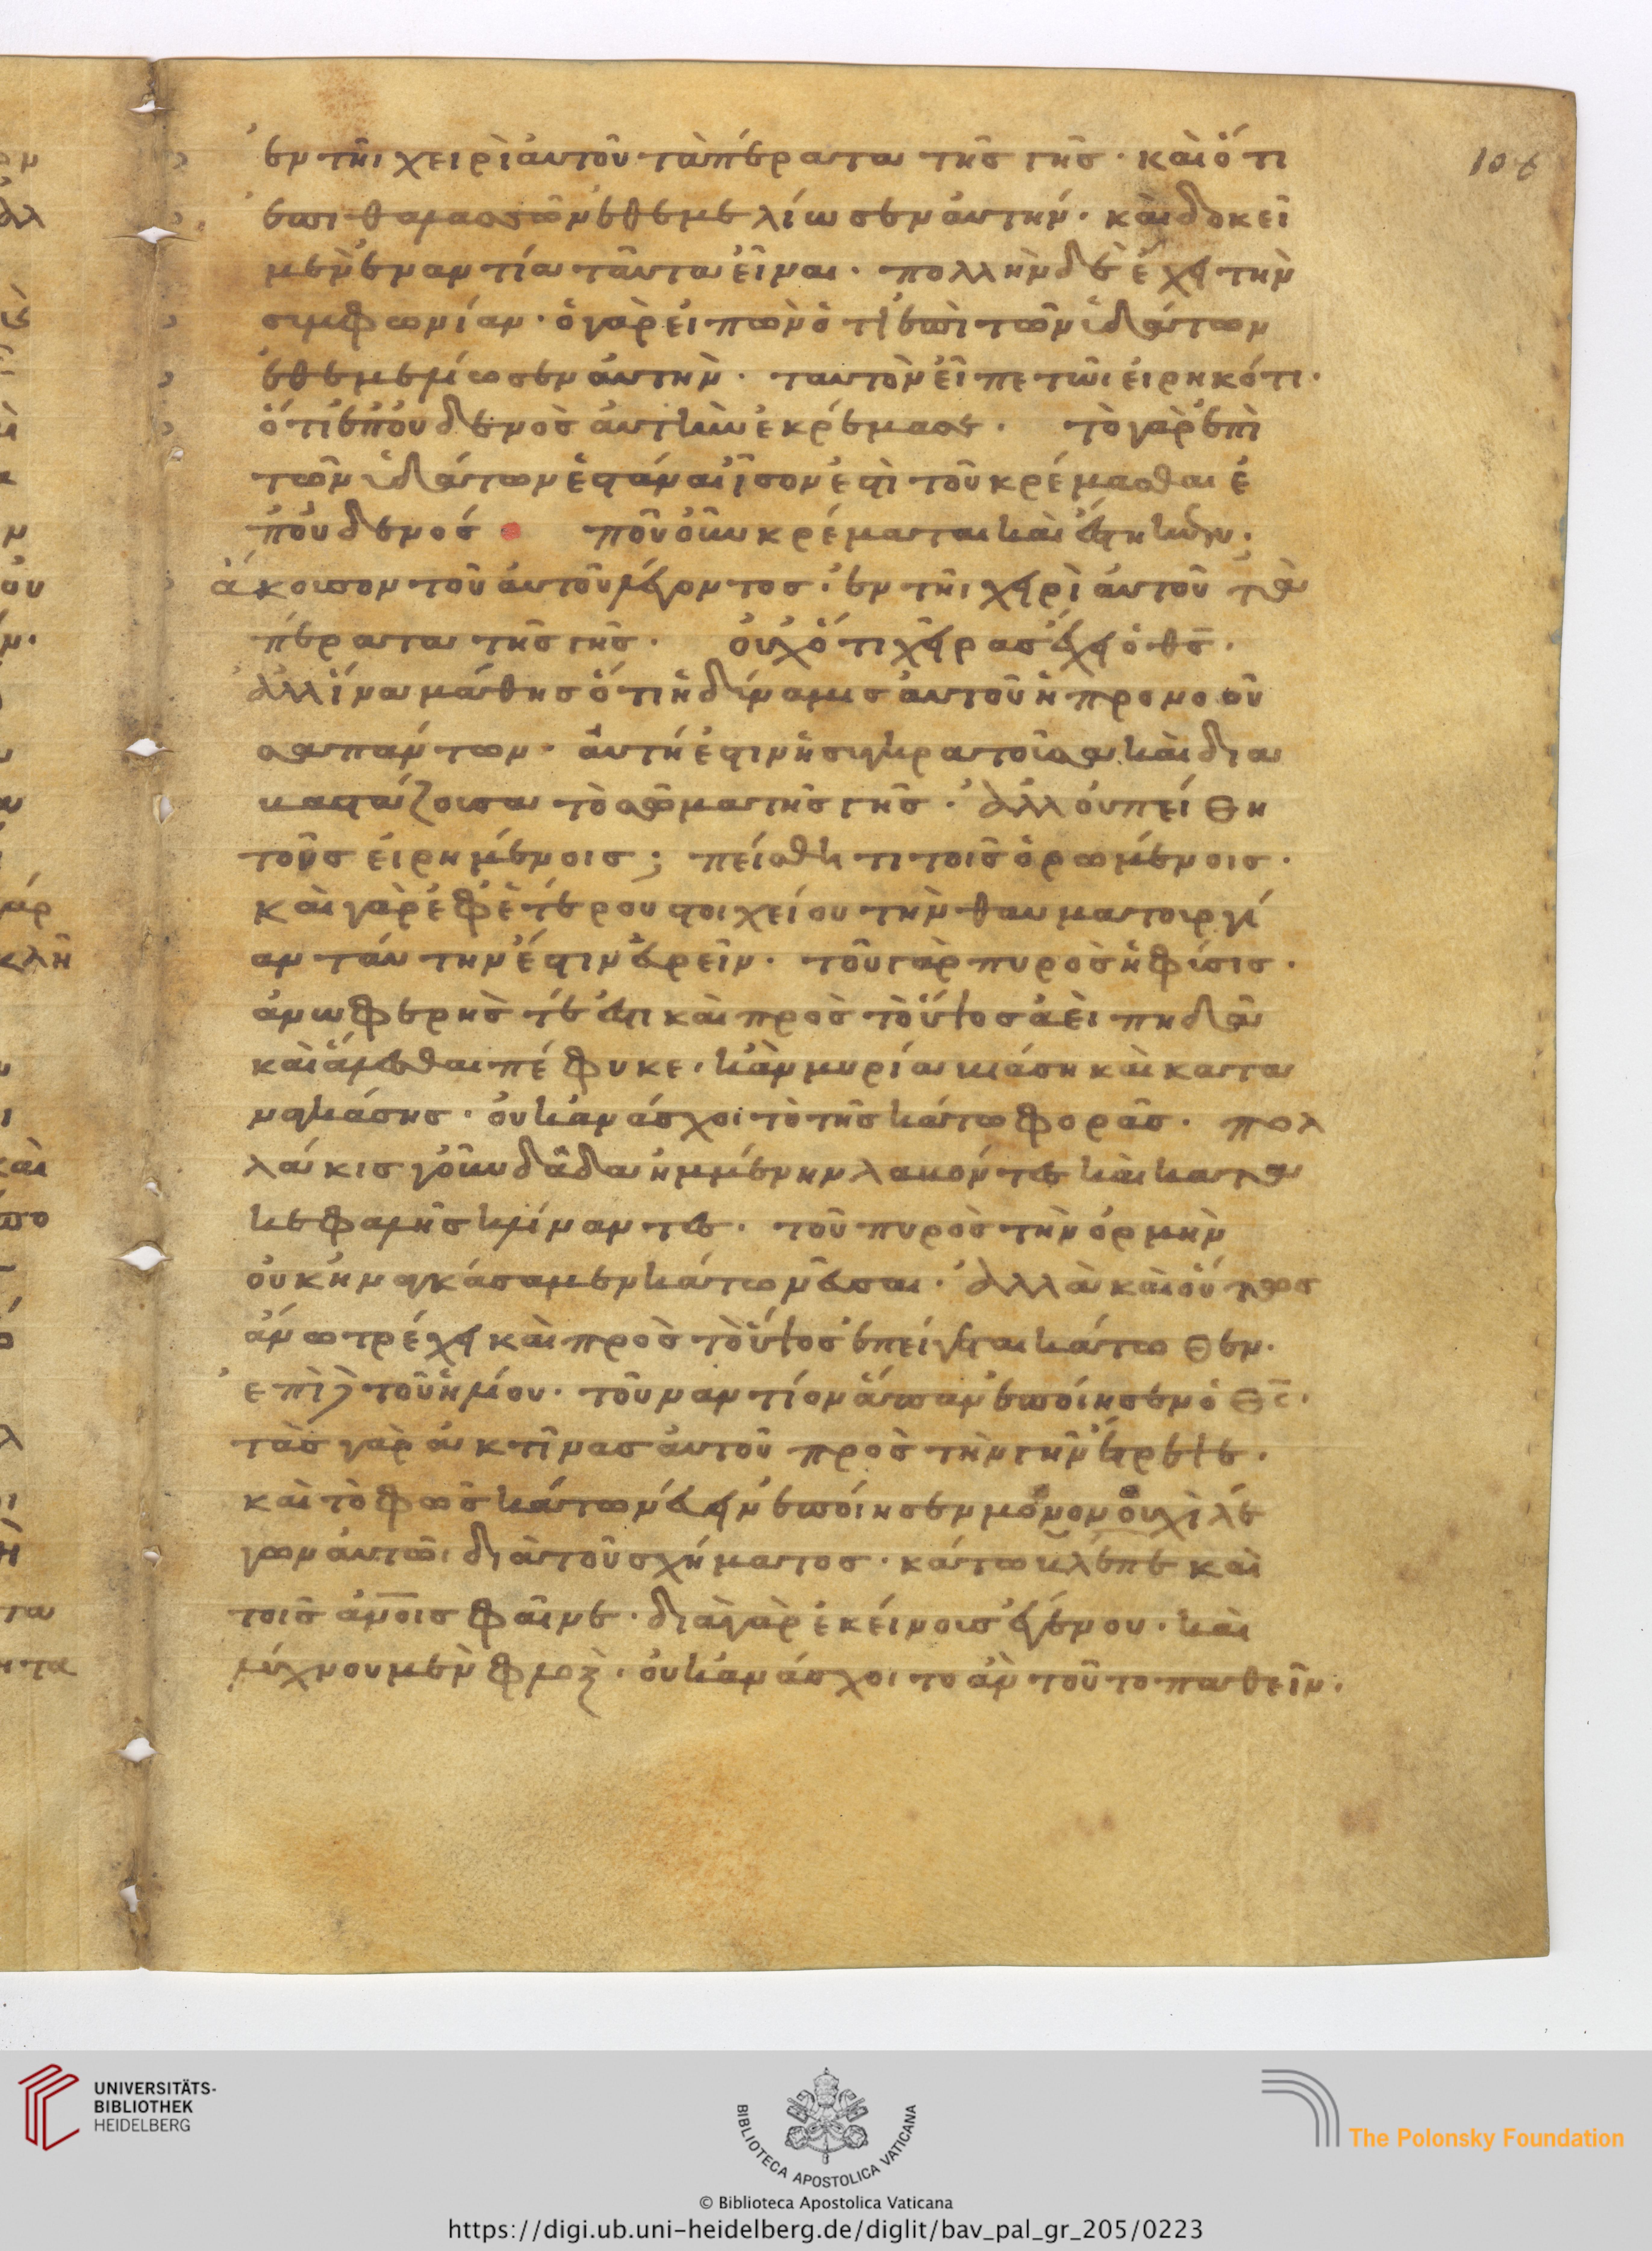 106
ἐν τῆι χειρὶ ἀυτοῦ τὰ πέρατα τῆς γῆς · καὶ ὅτι
ἐπι θαλασσῶν ἐθεμελίωσεν ἀυτήν · καὶ δοκεῖ
μὲν ἐναντία ταῦτα εἶναι · πολλὴν δὲ ἔχει τὴν
συμφωνίαν · ὁ γὰρ εἰπὼν ὅτι ἐπὶ τῶν ὑδάτων
ἐθεμελίωσεν ἀυτὴν · ταυτὸν εἶπε τῶι εἰρηκότι ·
ὅτι ἐπ' ὀυδενὸς ἀυτὴν ἐκρέμασε · τὸ γὰρ ἐπὶ
τῶν ὑδάτων ἑστάναι ἴσον ἐστὶ τοῦ κρέμασθαι ἐ
π' ὀυδενός ποῦ οὖν κρέμαται καὶ ἕστηκεν ·
ἄκουσον τοῦ ἀυτοῦ λέγοντος · ἐν τῆι χειρὶ ἀυτοῦ τὰ
πέρατα τῆς γῆς · ὀυχ ὅτι χεῖρας ἔχει ὁ θς̄ ·
ἀλλ' ἵνα μάθης ὅτι ἡ δύναμις ἀυτοῦ ἡ προνοοῦ
σα πάντων · ἀυτή ἐστιν ἡ συγκρατοῦσα καὶ δια
βαστάζουσα τὸ σῶμα τῆς γῆς · ἀλλ' ὀυ πείθη
τοῖς εἰρημένοις ; πείσθητι τοῖς ὁρωμένοις ·
καὶ γὰρ ἐφ' ἑτέρου στοιχείου τὴν θαυματουργί
αν ταύτην ἔστιν εὑρεῖν · τοῦ γὰρ πυρὸς ἡ φύσις ·
ἀνωφερὴς τέ ἐστι καὶ πρὸς τὸ ὕψος ἀεὶ πηδᾶ
καὶ ἅλλεσθαι πέφυκε · κἂν μυρία βιάση καὶ κατα
ναγκάσης · ὀυκ ἀνάσχοιτο τῆς κάτω φορᾶς · πολ
λάκις γοῦν δᾶδα ἡμμένην λαβόντες καὶ κατὰ
κεφαλῆς κλίναντες · τοῦ πυρὸς τὴν ὁρμὴν
ὀυκ ἠναγκάσαμεν κάτω νεῦσαι · ἀλλὰ καὶ οὕτως
ἄνω τρέχει καὶ πρὸς τὸ ὕψος ἐπείγεται κάτωθεν ·
ἐπὶ δὲ τοῦ ἡλίου · τοὐναντίον ἅπαν ἐποίησεν ὁ θς̄ ·
τὰς γὰρ ἀκτῖνας ἀυτοῦ πρὸς τὴν γῆν ἔτρεψε ·
καὶ τὸ φῶς κάτω νεύειν ἐποίησεν μόνον ὀυχὶ λέ
γων ἀυτῶι διὰ τοῦ σχήματος · κάτω βλέπε καὶ
τοῖς ἀνοις φαῖνε · διὰ γὰρ ἐκείνους ἐγένου · καὶ
λύχνου μὲν φλὸξ · ὀυκ ἀνάσχοιτο ἂν τοῦτο παθεῖν ·
UNIVERSITÄTS-
BIBLIOTHEK
HEIDELBERG
BIBLIOTECA APOSTOLICA VATICANA
The Polonsky Foundation
© Biblioteca Apostolica Vaticana
https://digi.ub.uni-heidelberg.de/diglit/bav_pal_gr_205/0223